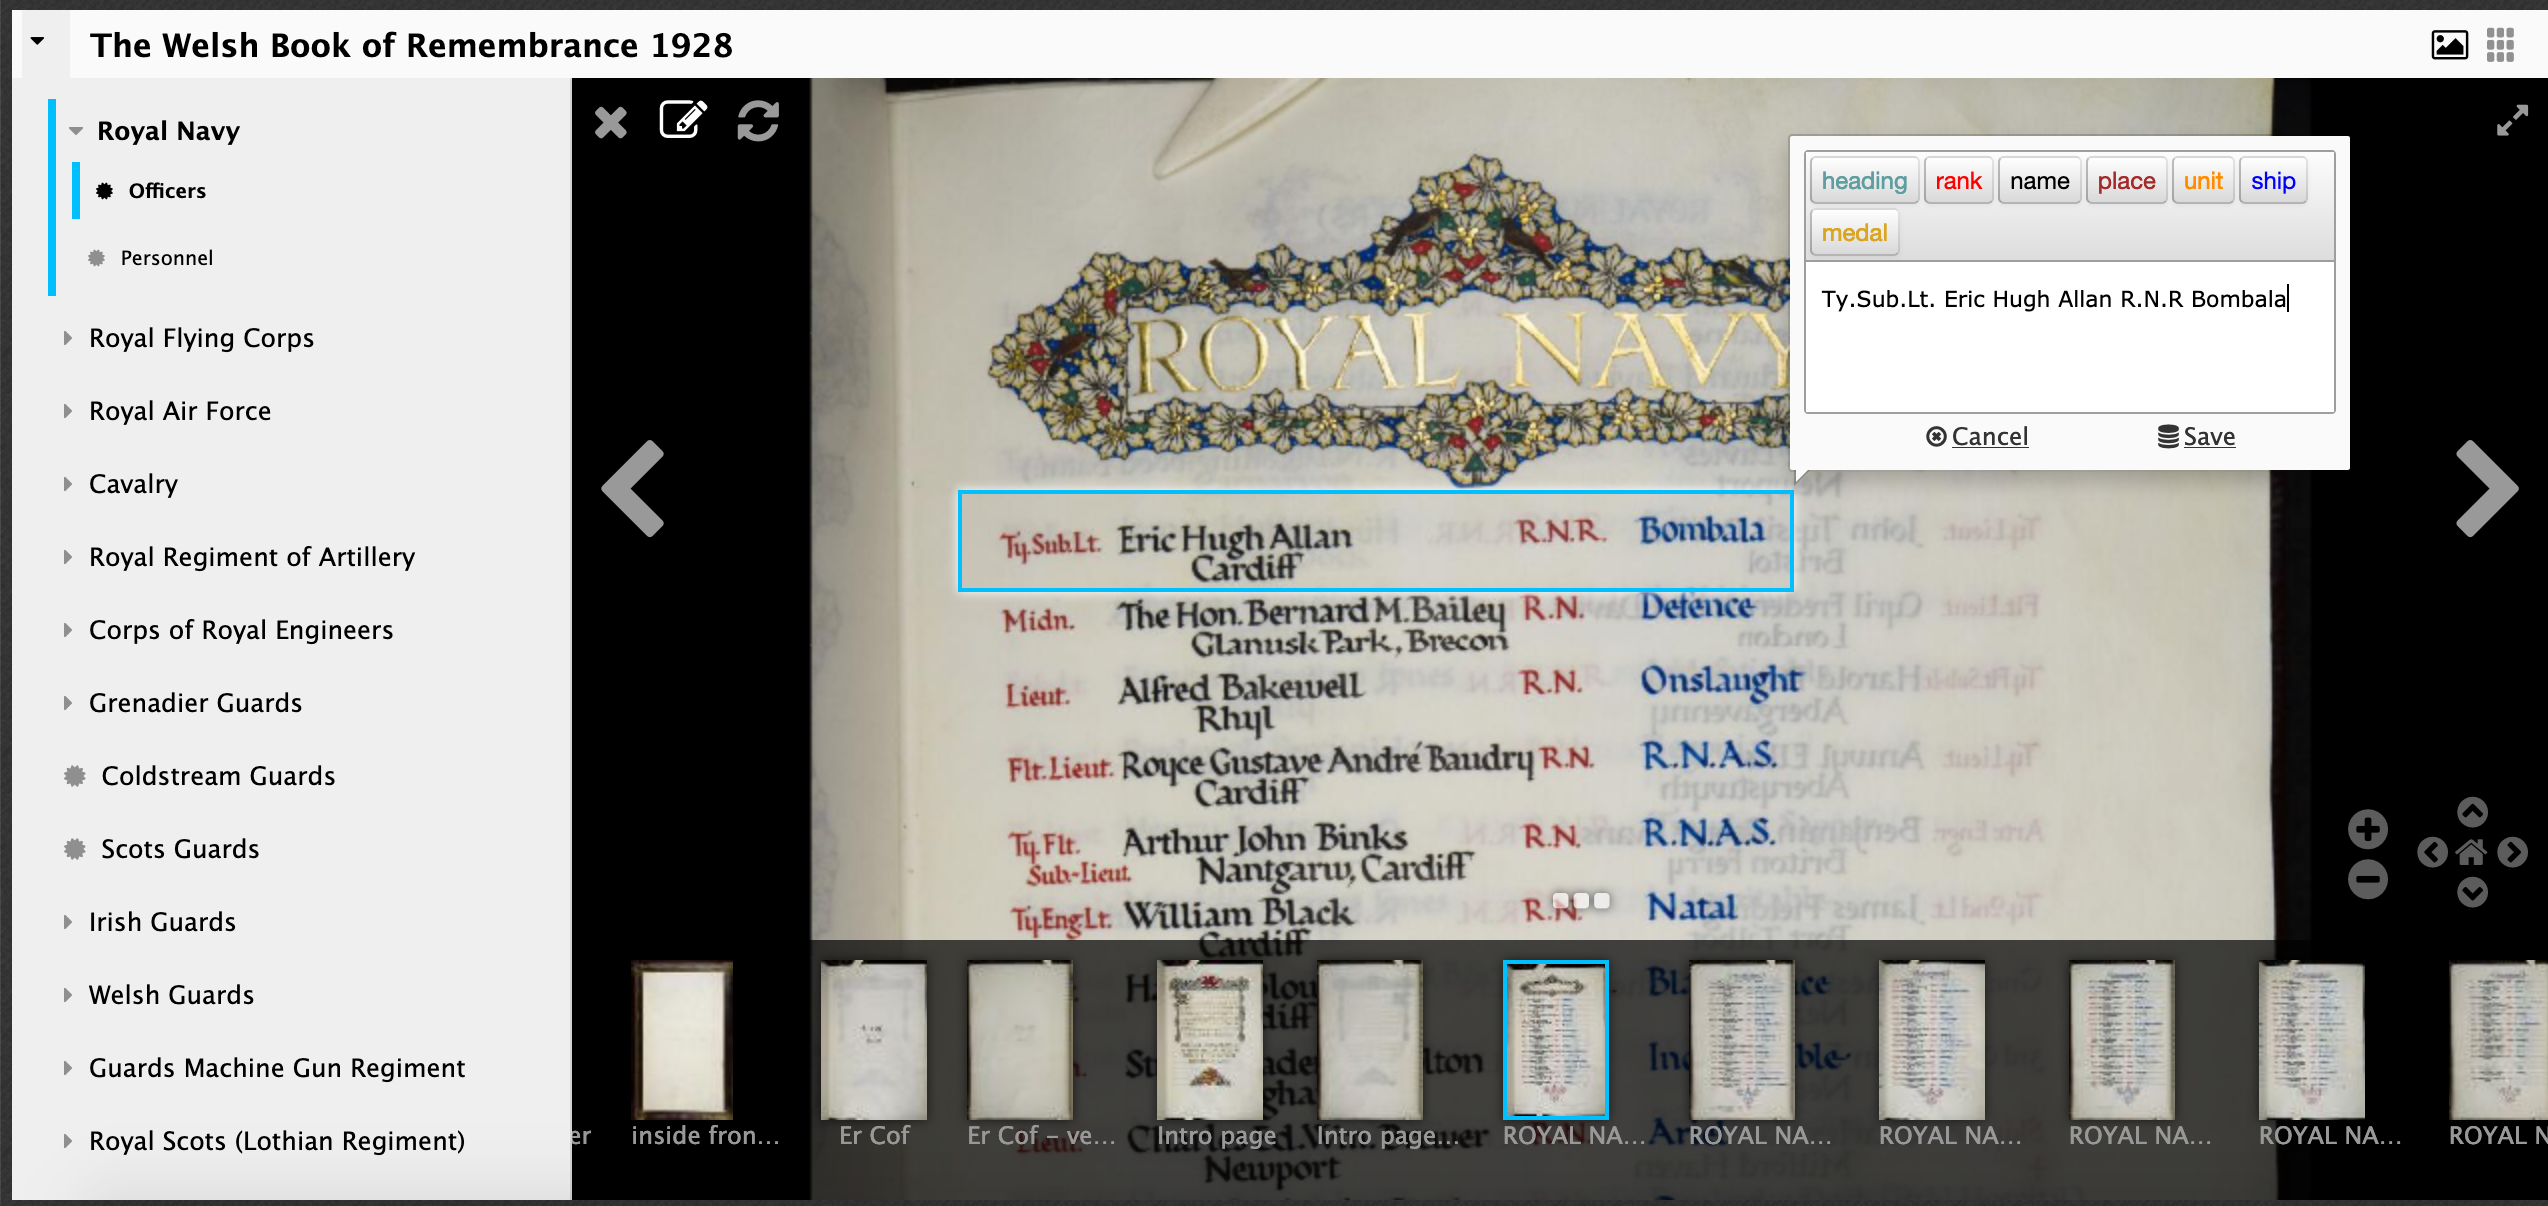 The Welsh Book of Remembrance 1928
Royal Navy
Officers
Personnel
Royal Flying Corps
Royal Air Force
Cavalry
Royal Regiment of Artillery
Corps of Royal Engineers
Grenadier Guards
Coldstream Guards
Scots Guards
Irish Guards
Welsh Guards
Guards Machine Gun Regiment
Royal Scots (Lothian Regiment)
heading rank name place unit ship
medal
Ty.Sub.Lt. Eric Hugh Allan R.N.R Bombala
Cancel Save
ROYAL NAVY
Ty.Sub.Lt. Eric Hugh Allan R.N.R. Bombala
Cardiff
Midn. The Hon. Bernard M. Bailey R.N. Defence
Glanusk Park, Brecon
Lieut. Alfred Bakewell R.N. Onslaught
Rhyl
Flt.Lieut. Royce Gustave André Baudry R.N. R.N.A.S.
Cardiff
Ty. Flt. Arthur John Binks R.N. R.N.A.S.
Sub-Lieut. Nantgarw, Cardiff
Ty.Eng.Lt. William Black R.N. Natal
Cardiff
Newport
er inside fron... Er Cof Er Cof - ve... Intro page Intro page... ROYAL NA... ROYAL NA... ROYAL NA... ROYAL NA... ROYAL NA... ROYAL N